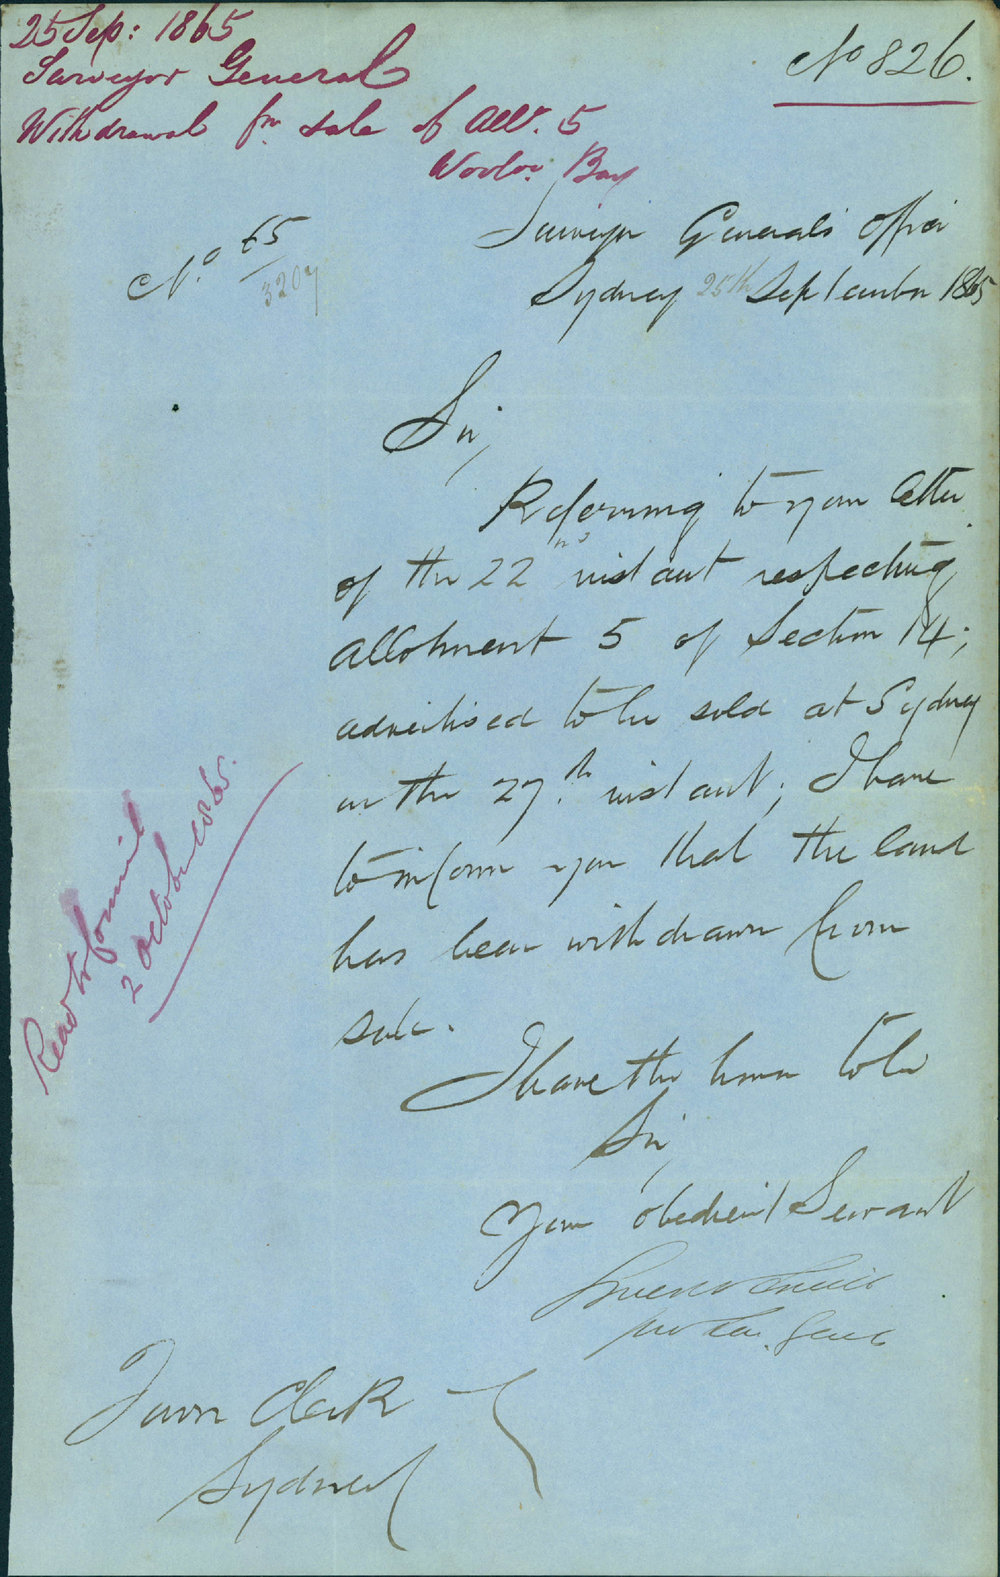 25 Sep: 1865
Surveyor General
Withdrawal fm sale of Allt. 5
Wooloo: Bay
No 826.
Surveyor General's Office
No. 65/3207
Sydney 25th September 1865
Sir,
Referring to your letter
of the 22nd instant respecting
allotment 5 of Section 14;
advertised to be sold at Sydney
on the 27.th instant; I have
to inform you that the land
has been withdrawn from
sale.
I have the honor to be
Sir,
Your obedient Servant
pro Sur. Genl
Town Clerk
Sydney
Read to Council
2 October 1865.